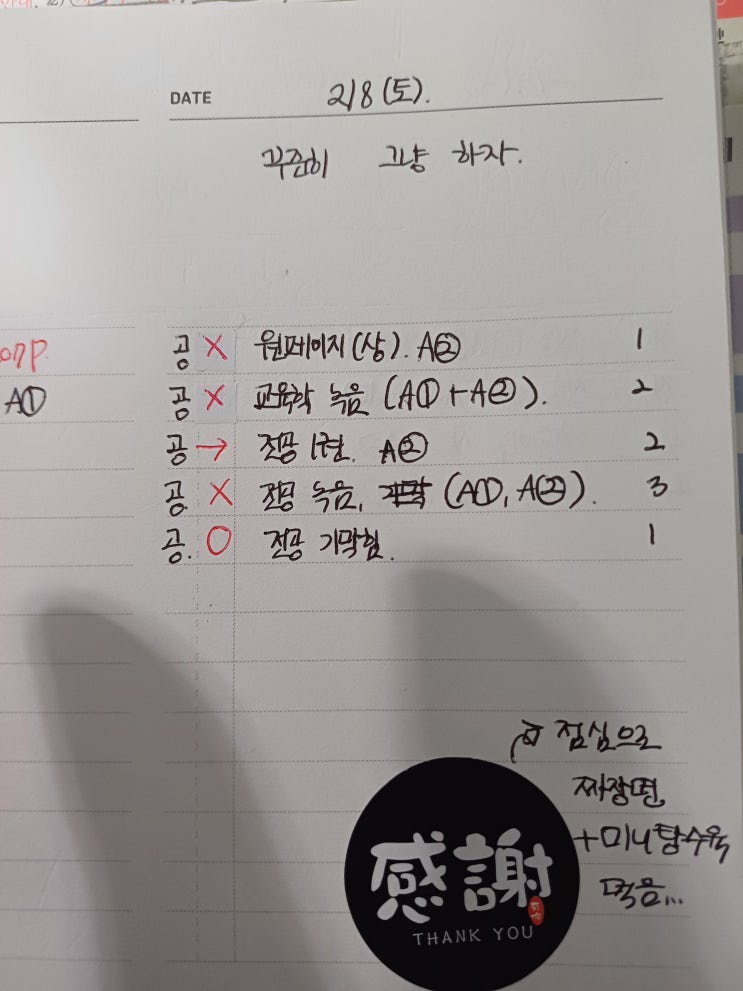 DATE 2/8(토).
꾸준히 그냥 하자.
07P.
A①
공 X 원페이지(상). A② 1
공 X 교육학 녹음 (A①+A②). 2
공 → 전공 1권. A② 2
공. X 전공 녹음, (A①, A②). 3
공. O 전공 기막힘. 1
점심으로
짜장면
+미니탕수육
먹음...
感謝
THANK YOU